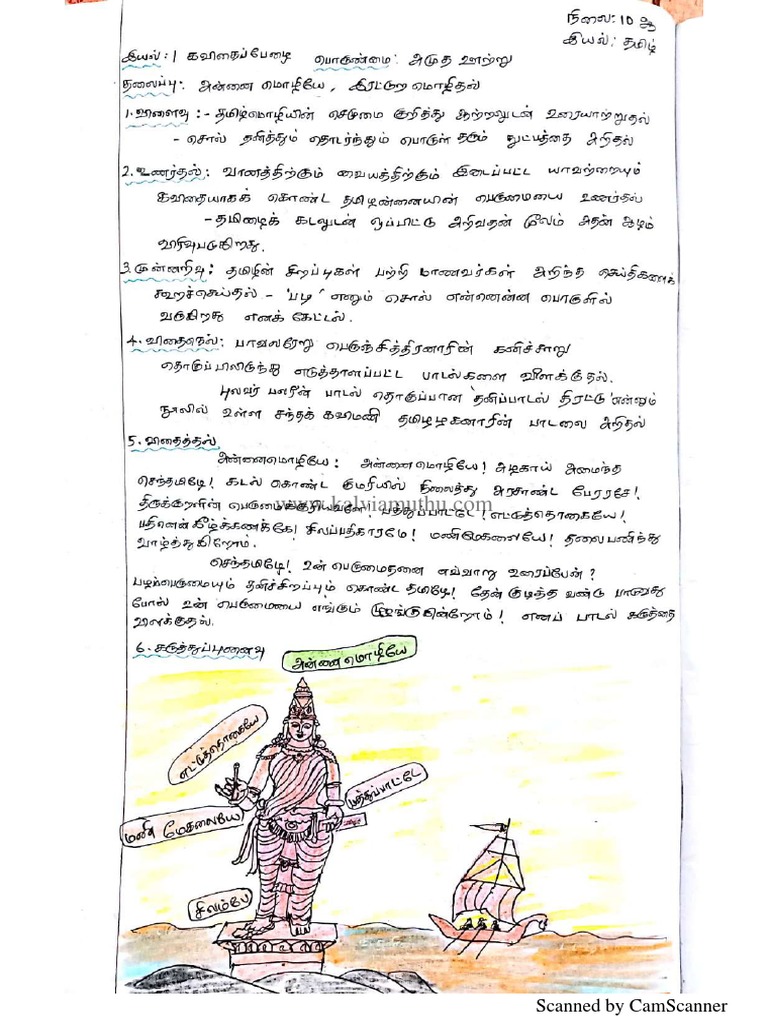 நிலை: 10 ஆ
இயல்: தமிழ்
இயல்: 1 கவிதைப்பேழை பொருண்மை: அமுத ஊற்று
தலைப்பு: அன்னை மொழியே, இரட்டுற மொழிதல்
1. விளைவு :- தமிழ்மொழியின் செழுமை குறித்து ஆற்றலுடன் உரையாற்றுதல்
- சொல் தனித்தும் தொடர்ந்தும் பொருள் தரும் நுட்பத்தை அறிதல்
2. உணர்தல்: வானத்திற்கும் வையத்திற்கும் இடைப்பட்ட யாவற்றையும்
கவிதையாகக் கொண்ட தமிழன்னையின் பெருமையை உணர்தல்
- தமிழைக் கடலுடன் ஒப்பிட்டு அறிவதன் மூலம் அதன் ஆழம்
3. முன்னறிவு: தமிழின் சிறப்புகள் பற்றி மாணவர்கள் அறிந்த செய்திகளைக்
கூறச்செய்தல் - 'படி' எனும் சொல் என்னென்ன பொருளில்
வருகிறது எனக் கேட்டல்.
4. விதைநெல்: பாவலரேறு பெருஞ்சித்திரனாரின் கனிச்சாறு
தொகுப்பிலிருந்து எடுத்தாளப்பட்ட பாடல்களை விளக்குதல்.
புலவர் பலரின் பாடல் தொகுப்பான 'தனிப்பாடல் திரட்டு' என்னும்
நூலில் உள்ள சந்தக் கவிமணி தமிழழகனாரின் பாடலை அறிதல்
5. விதைத்தல்
அன்னைமொழியே! அன்னைமொழியே! அழகாய் அமைந்த
செந்தமிழே! கடல் கொண்ட குமரியில் நிலைத்து அரசாண்ட பேரரசே!
www.kalviamuthu.com
திருக்குறளின் பெருமைக்குரியவளே! பத்துப்பாட்டே! எட்டுத்தொகையே!
பதினெண்கீழ்க்கணக்கே! சிலப்பதிகாரமே! மணிமேகலையே! தலைபணிந்து
வாழ்த்துகிறோம்.
செந்தமிழே! உன் பெருமைதனை எவ்வாறு உரைப்பேன்?
பழம்பெருமையும் தனிச்சிறப்பும் கொண்ட தமிழே! தேன் குடித்த வண்டு பாடுவது
போல் உன் பெருமையை எங்கும் முழங்குகின்றோம்! எனப் பாடல் கருத்தை
விளக்குதல்.
6. கருத்துப்புனைவு
அன்னைமொழியே
எட்டுத்தொகையே
பத்துப்பாட்டே
மணி மேகலையே
சிலம்பே
Scanned by CamScanner